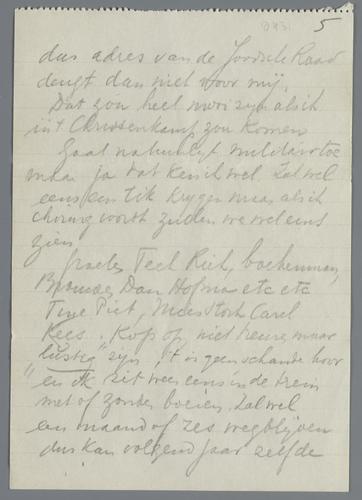 5
dus adres van de Joodsche Raad
deugt dan niet voor mij.
Dat zou heel mooi zijn als ik
in 't Chrissenkamp zou komen
Gaat natuurlijk militair toe
maar ja dat ken ik wel. Zal wel
eens een tik krygen maar als ik
chirurg wordt zullen we wel eens
zien
Groeten Teel Riek, boekenman,
Brouwer, Dan Hofman etc etc
Tine Piet, Mees Stork Carel
Kees. Kop op, niet treure maar
"lustig" zijn. 't is geen schande hoor
en ik zit weer eens in de trein
met of zonder boeien. Zal wel
een maand of zes wegblijven
dus kan volgend jaar zelfde